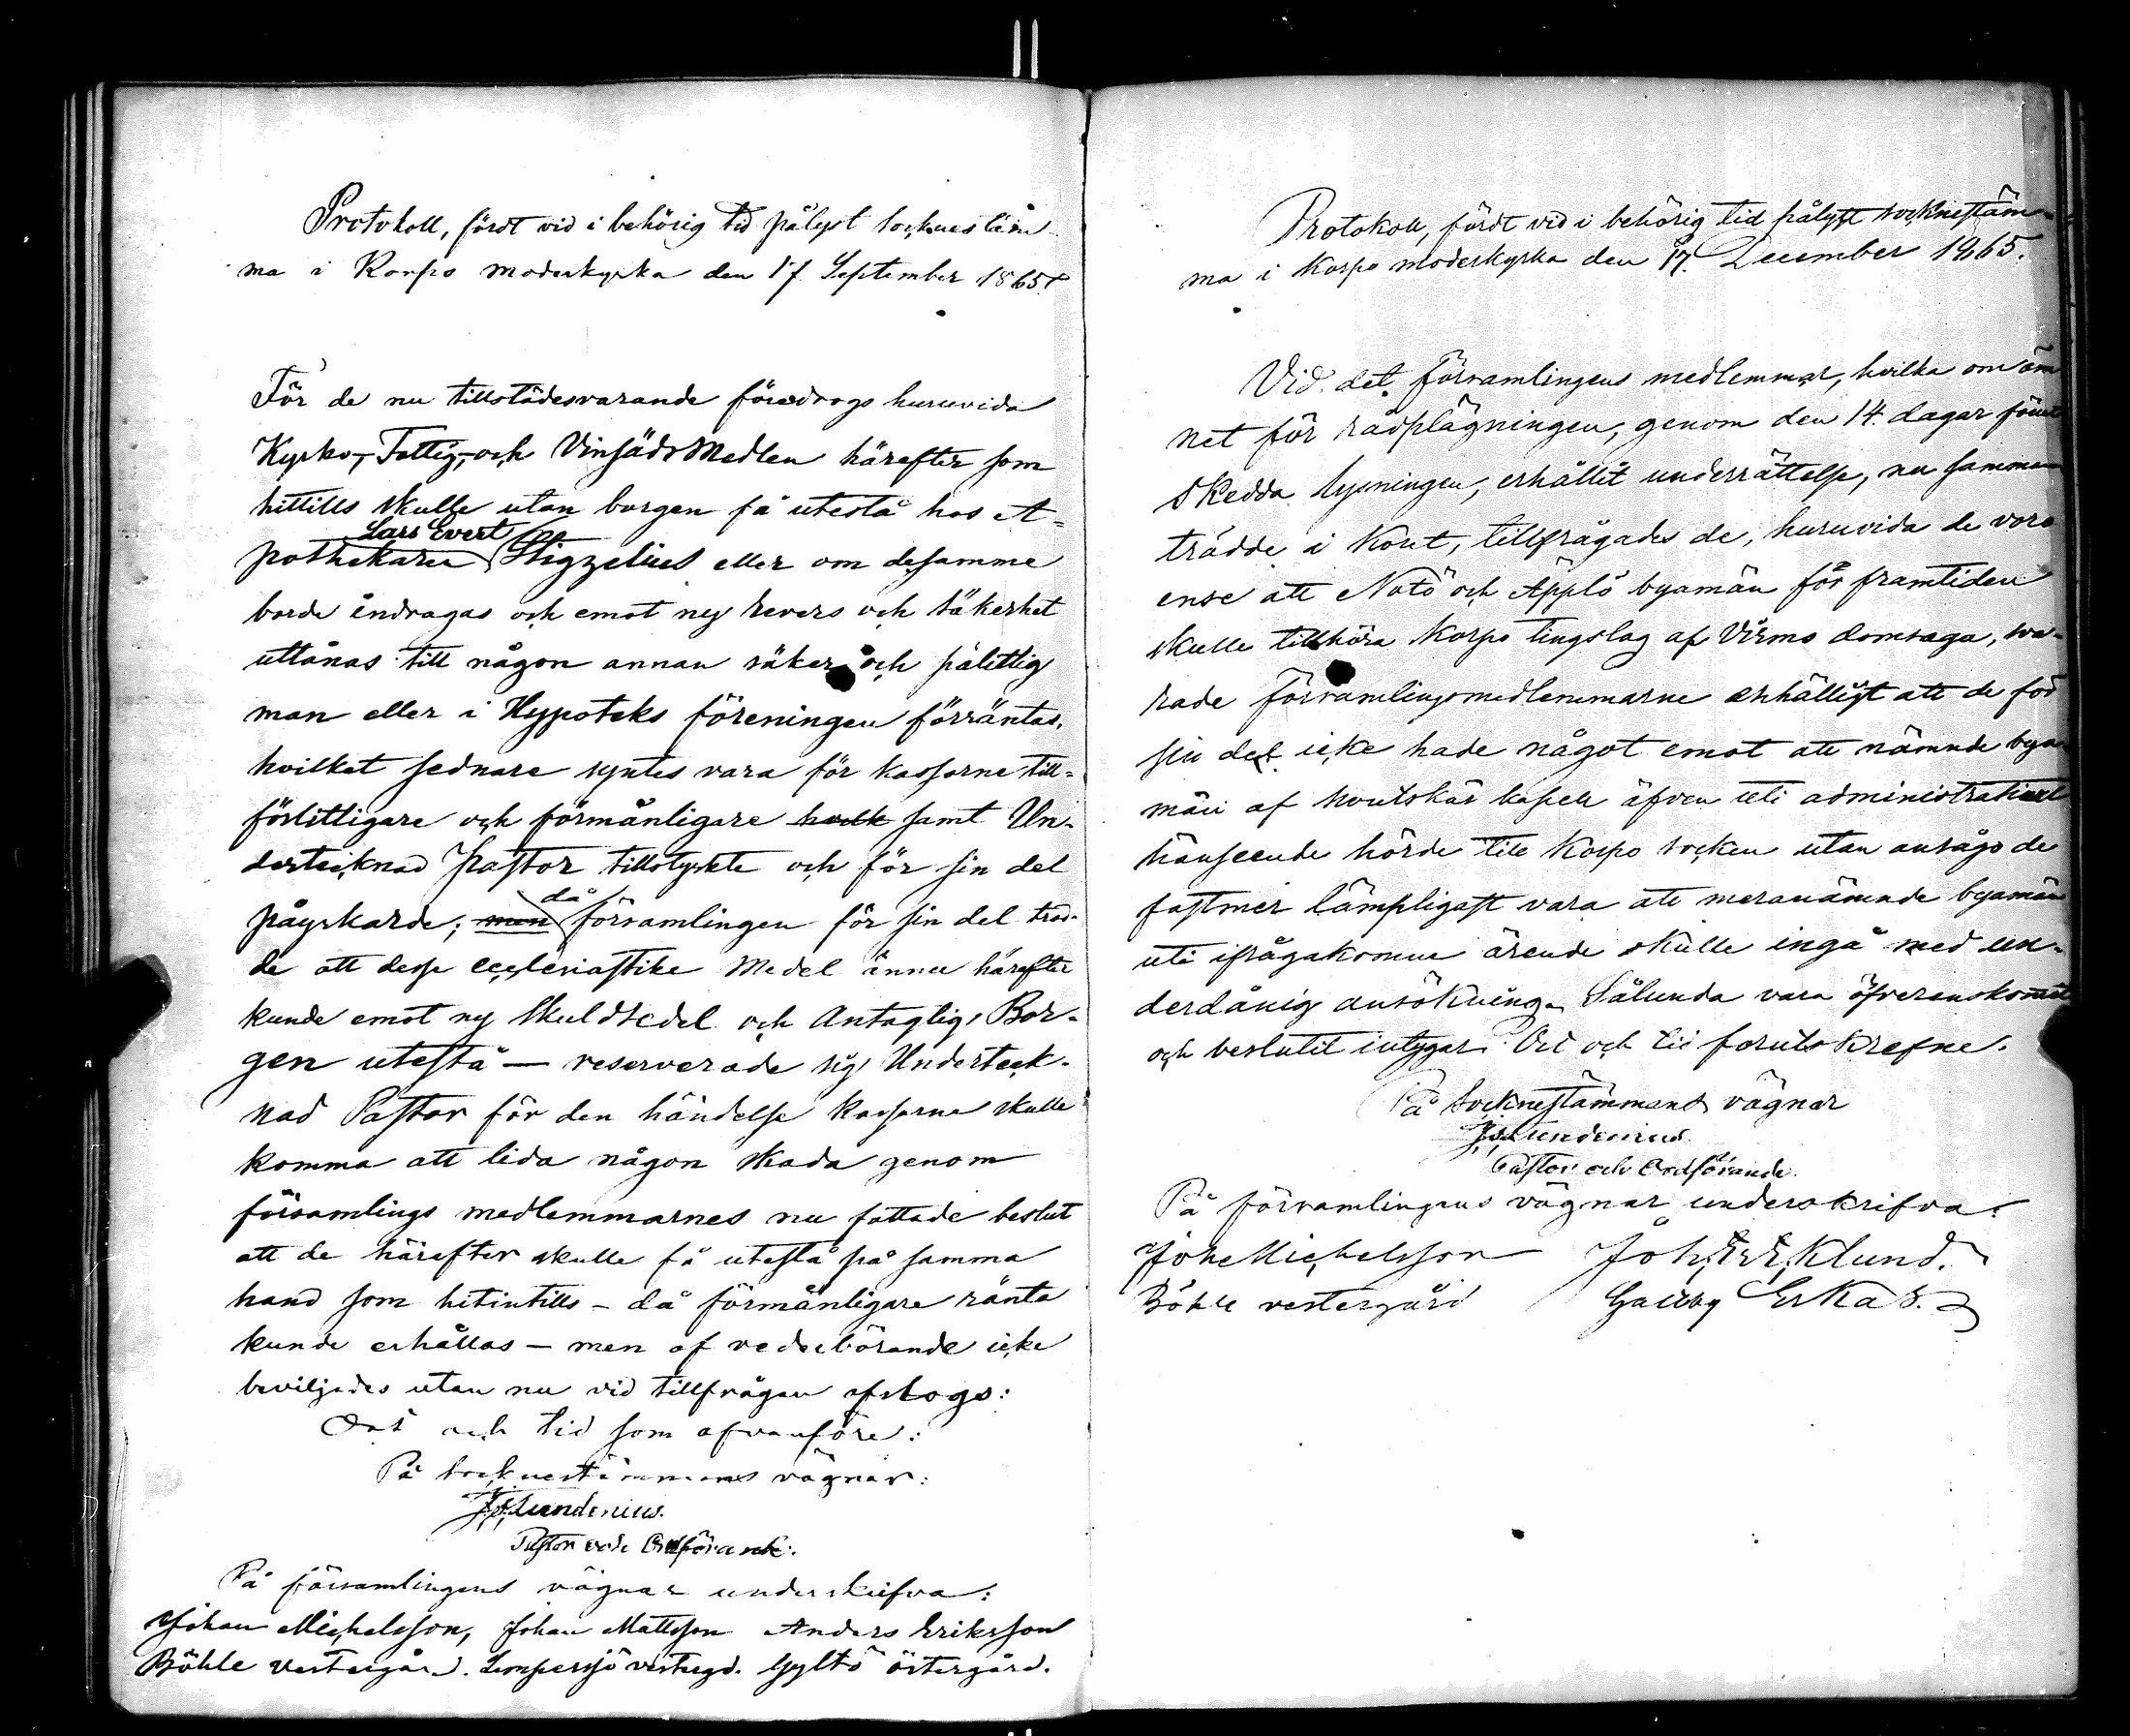 Protokoll, fördt vid i behörig tid pålyst sockenstäm-
ma i Korpo moderkyrka den 17 September 1865.
För de nu tillstädesvarande föredrogs huruvida
Kyrko-, Fattig-, och Vinsäds Medlen härefter som
hittills skulle utan borgen få utestå hos A-
Lars Evert
pothekaren Stigzelius eller om desamme
borde indragas och emot ny revers och säkerhet
utlånas till någon annan säker och pålitlig
man eller i Hypoteks föreningen förräntas,
hvilket sednare syntes vara för kassorne till-
förlitligare och förmånligare hvilk samt Un-
dertecknad Pastor tillstyrkte och för sin del
då
påyrkarde; men församlingen för sin del trod-
de att desse ecclesiastike Medel ännu härefter
kunde emot ny skuldsedel och Antaglig Bor-
gen utestå — reserverade sig Underteck-
nad Pastor för den händelse kassorne skulle
komma att lida någon skada genom
församlings medlemmarnes nu fattade beslut
att de härefter skulle få utestå på samma
hand som hitintills — då förmånligare ränta
kunde erhållas — men af vederbörande icke
beviljades utan nu vid tillfrågan afslogs:
Ort och tid som ofvanföre:
På socknestämmans vägnar:
J. Lundenius.
Pastor och Ordförande.
På församlingens vägnar underskrifva:
Johan Michelsson, Johan Mattsson Anders Eriksson
Böhle vestergård. Lempersjö vestergd. Gyltö östergård.
Protokoll, fördt vid i behörig tid pålyst socknestäm-
ma i Korpo moderkyrka den 17. December 1865.
Vid det församlingens medlemmar, hvilka om äm
net för rådplägningen, genom den 14. dagar förut
skedda lysningen, erhållit underrättelse, nu samman
trädde i Kort, tillfrågades de, huruvida de voro
ense att Nötö och Äpplö byamän för framtiden
skulle tillhöra Korpo tingslag af Virmo domsaga, sva-
rade församlingsmedlemmarne enhälligt att de för
sin del icke hade något emot att nämnde bya-
män af Houtskär kapell äfven uti administratift
hänseende hörde till Korpo socken utan ansågo de
fastmer lämpligast vara att meranämnde byamän
uti ifrågakomne ärende skulle ingå med un-
derdånig ansökning. Sålunda vara öfverenskommit
och beslutit intygar. Ort och tid förutskrefne.
På Socknestämmans vägnar
J. Lundenius.
Pastor och Ordförande.
På församlingens vägnar underskrifva:
Joh Michelsson Joh: Er: Eklund.
Böhle vestergård Galtby Erkas.